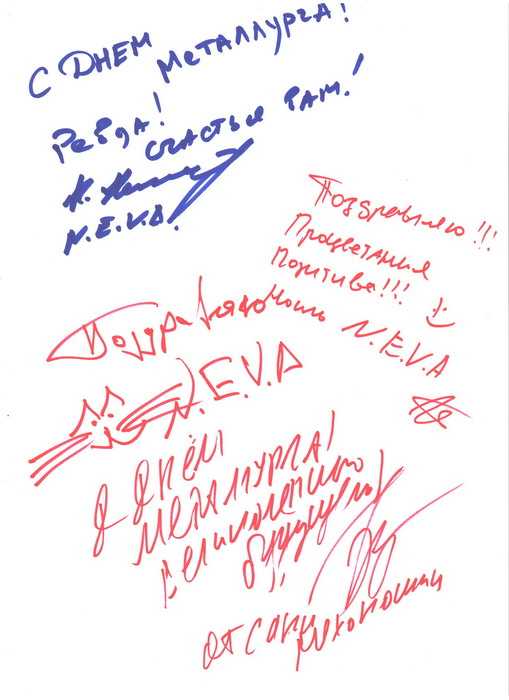 С Днем Металлурга!
Ревда!
Счастья Вам!
N.E.V.A.
Поздравляю!!!
Процветания
Позитива!!! :)
N.E.V.A
Поздравляю
N.E.V.A
С Днём
Металлурга!
Великолепного
будущего!!!
от Сани